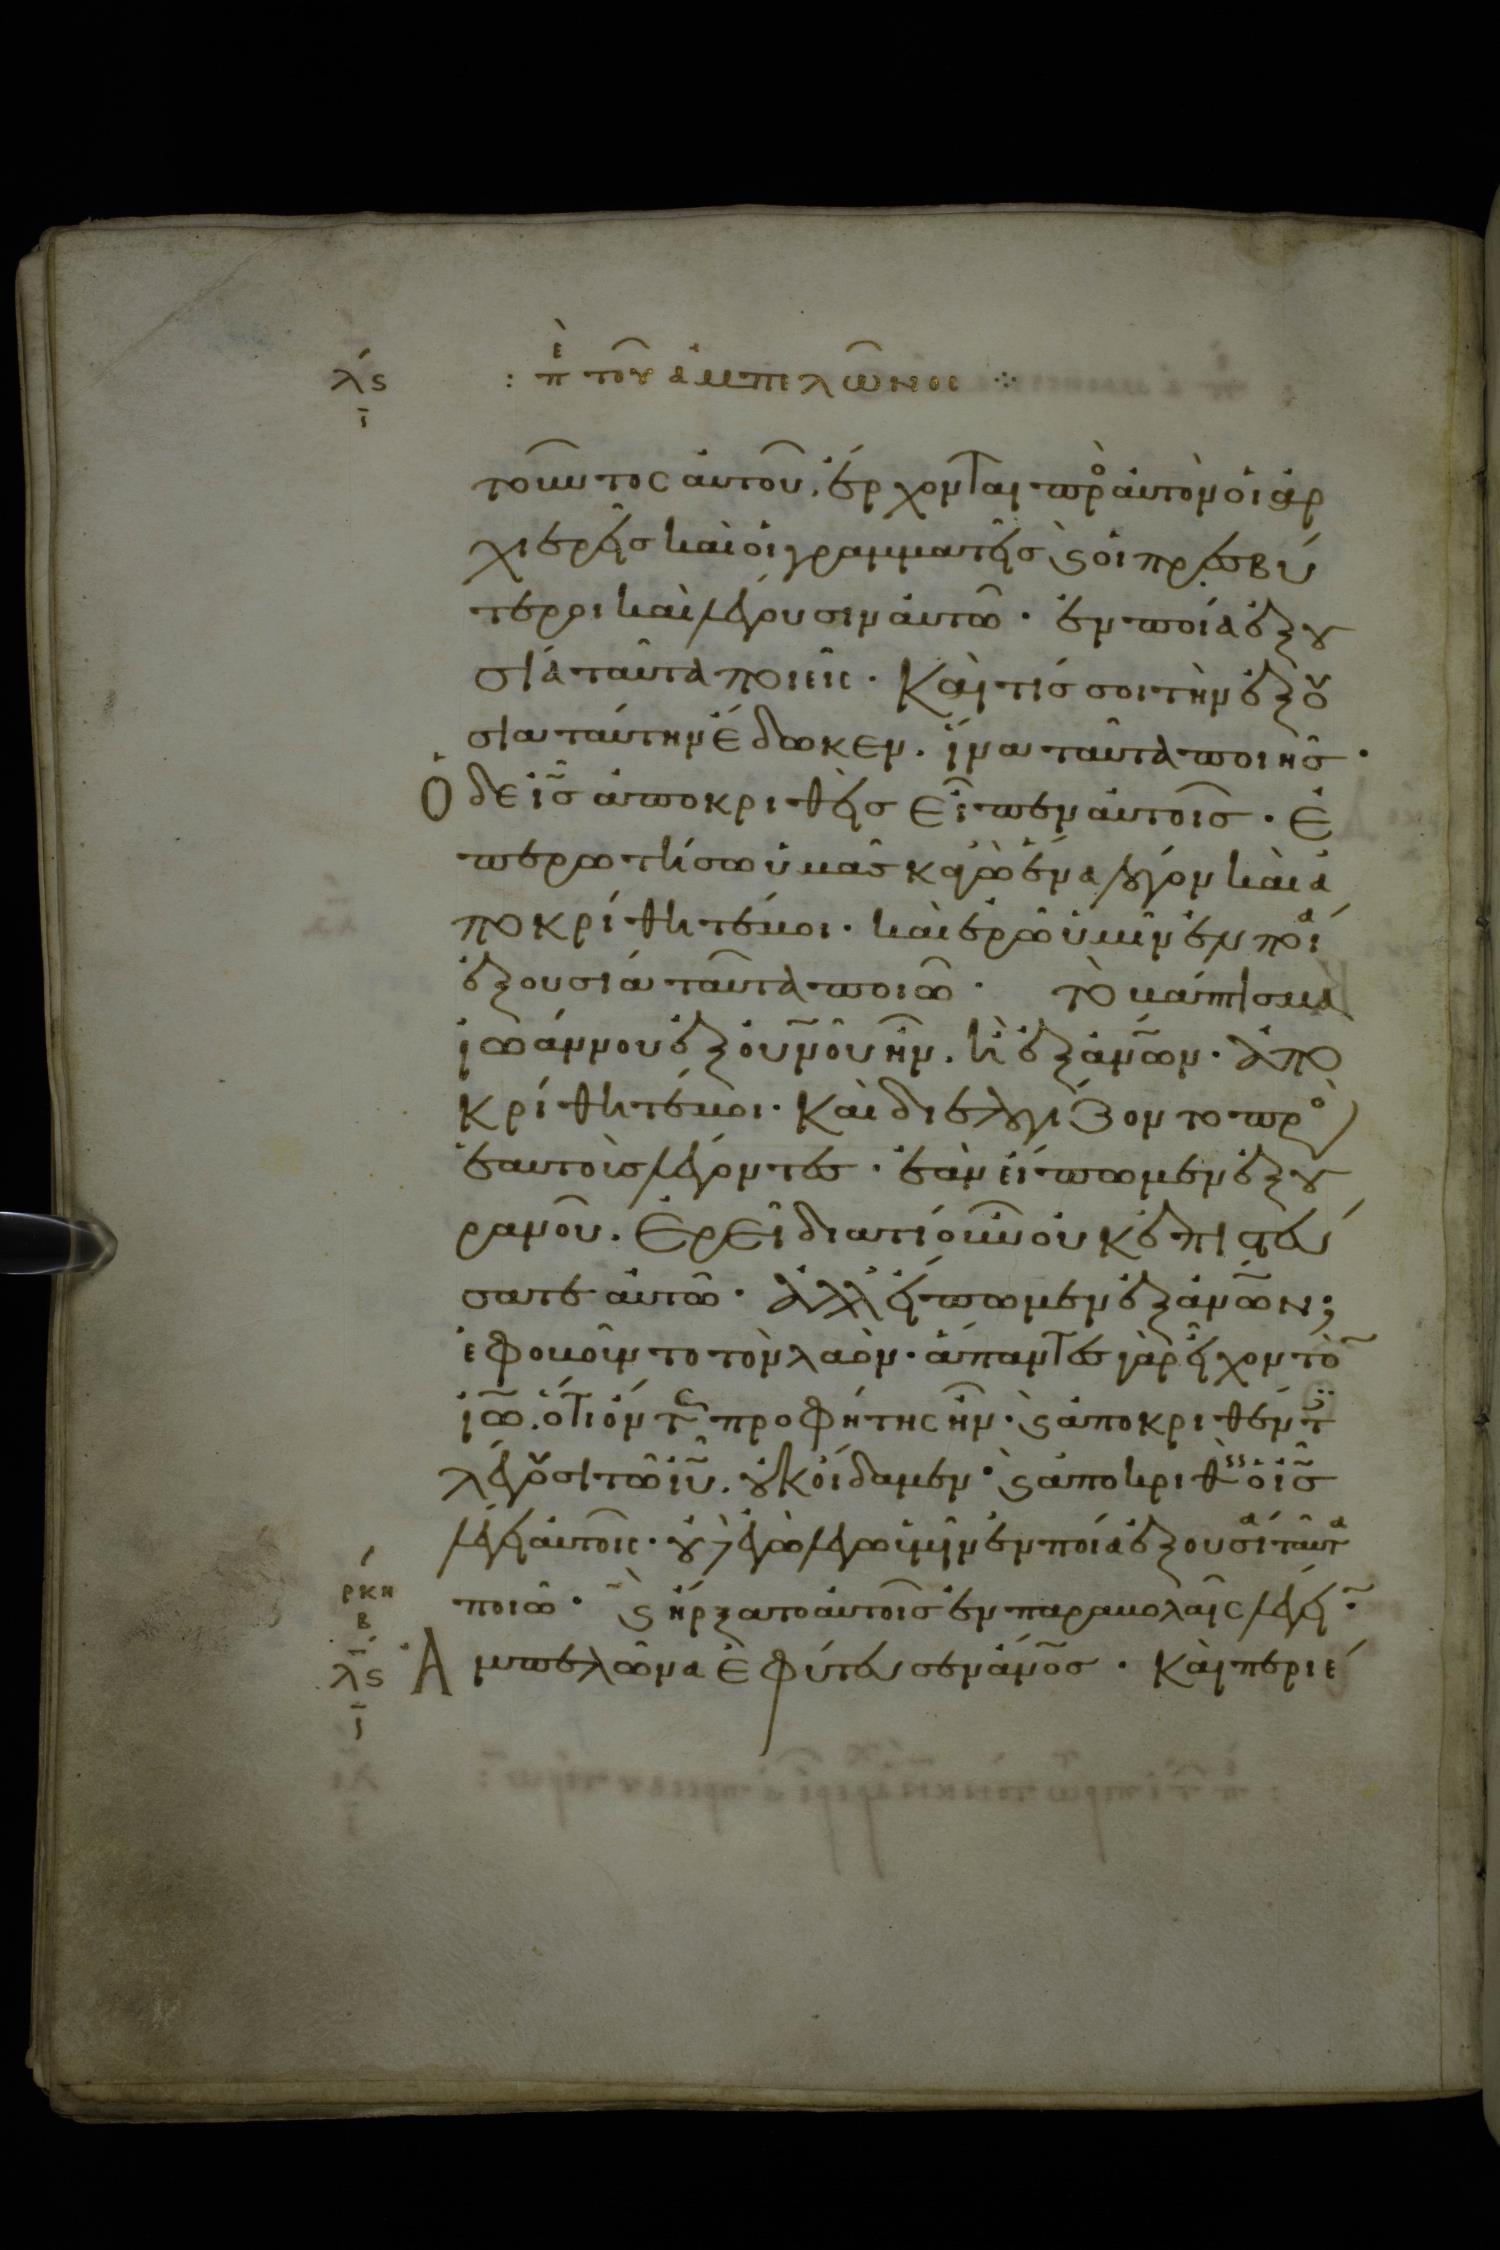 λϛ
ι
: πε τοῦ ἀμπελῶνος ⁘
τοῦντος αὐτοῦ. ἔρχονται πρὸ αὐτὸν οἱ ἀρ
χιερεῖς καὶ οἱ γραμματεῖς ϗ οἱ πρεσβύ
τεροι καὶ λέγουσιν αὐτῶ· ἐν ποία ἐξου
σία ταῦτα ποιεῖς· Καὶ τίς σοι τὴν ἐξου
σίαν ταύτην ἔδωκεν. ἵνα ταῦτα ποιῆς·
Ὁ δὲ ις ἀποκριθεὶς εἶπεν αὐτοῖς· Ἐ
περωτήσω ὑμᾶς καγὼ ἕνα λόγον καὶ ἀ
ποκρίθητέ μοι· καὶ ἐρῶ ὑμῖν ἐν ποία
ἐξουσία ταῦτα ποιῶ· τὸ βάπτισμα
ἰωάννου ἐξ ουνοῦ ἦν. ἢ ἐξ ἀνων· ἀπο
κρίθητέ μοι· Καὶ διελογίζοντο πρὸ
ἑαυτοὺς λέγοντες· ἐὰν εἴπωμεν ἐξ ου
ρανοῦ. Ἐρεῖ διατί οὖν οὐκ ἐπιστεύ
σατε αὐτῶ· ἀλλ εἴπωμεν ἐξ ἀνων;
ἐφοβοῦντο τὸν λαόν· ἅπαντες γὰρ εἶχον τὸ
ιω. ὅτι ὄντως προφήτης ἦν· ϗ ἀποκριθέντ
λέγουσι τῶ ιυ. οὐκ οἴδαμεν· ϗ ἀποκριθεὶς ὁ ις
λέγει αὐτοῖς· οὐδὲ ἐγὼ λέγω ὑμῖν ἐν ποία ἐξουσία ταῦτα
ποιῶ· ϗ ἤρξατο αὐτοῖς ἐν παραβολαῖς λέγει·
ρκη
β
λϛ
ι
Ἀμπελῶνα ἐφύτευσεν ἀνος· Καὶ περιέ